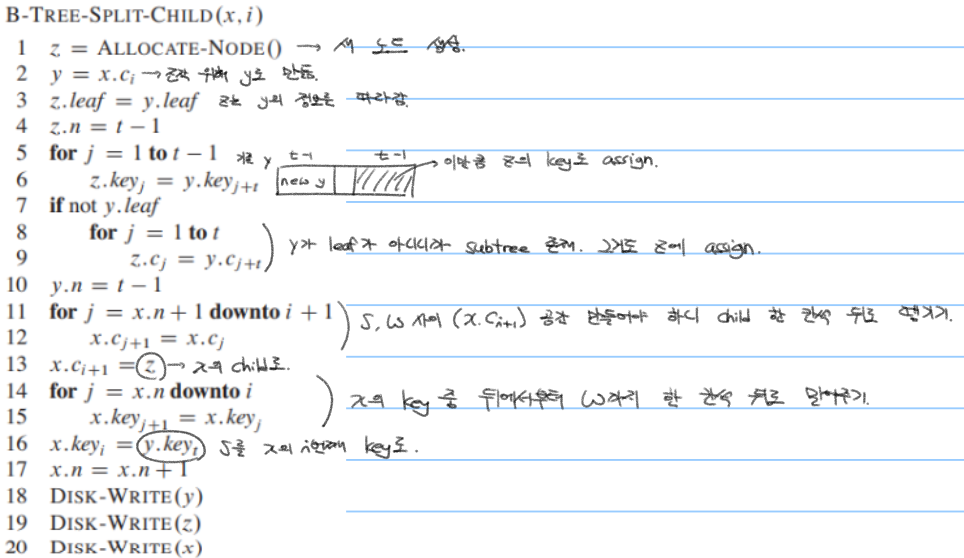 B-TREE-SPLIT-CHILD(x, i)
1 z = ALLOCATE-NODE() → 새 노드 생성.
2 y = x.cᵢ → 로 만듦.
3 z.leaf = y.leaf z는 y의 정보를 따라감.
4 z.n = t − 1
5 for j = 1 to t − 1 기존 y t-1 t-1 → 이만큼 z의 key로 assign.
6 z.keyⱼ = y.keyⱼ₊ₜ new y
7 if not y.leaf
8 for j = 1 to t
y가 leaf가 아니니까 subtree 존재. 그거도 z에 assign.
9 z.cⱼ = y.cⱼ₊ₜ
10 y.n = t − 1
11 for j = x.n + 1 downto i + 1
S, W 사이 (x.Cᵢ₊₁) 공간 만들어야 하니 child 한 칸씩 뒤로 땡기기.
12 x.cⱼ₊₁ = x.cⱼ
13 x.cᵢ₊₁ = z → x의 child로.
14 for j = x.n downto i
x의 key 중 뒤에서부터 W까지 한 칸씩 뒤로 밀어주기.
15 x.keyⱼ₊₁ = x.keyⱼ
16 x.keyᵢ = y.keyₜ S를 x의 i번째 key로.
17 x.n = x.n + 1
18 DISK-WRITE(y)
19 DISK-WRITE(z)
20 DISK-WRITE(x)